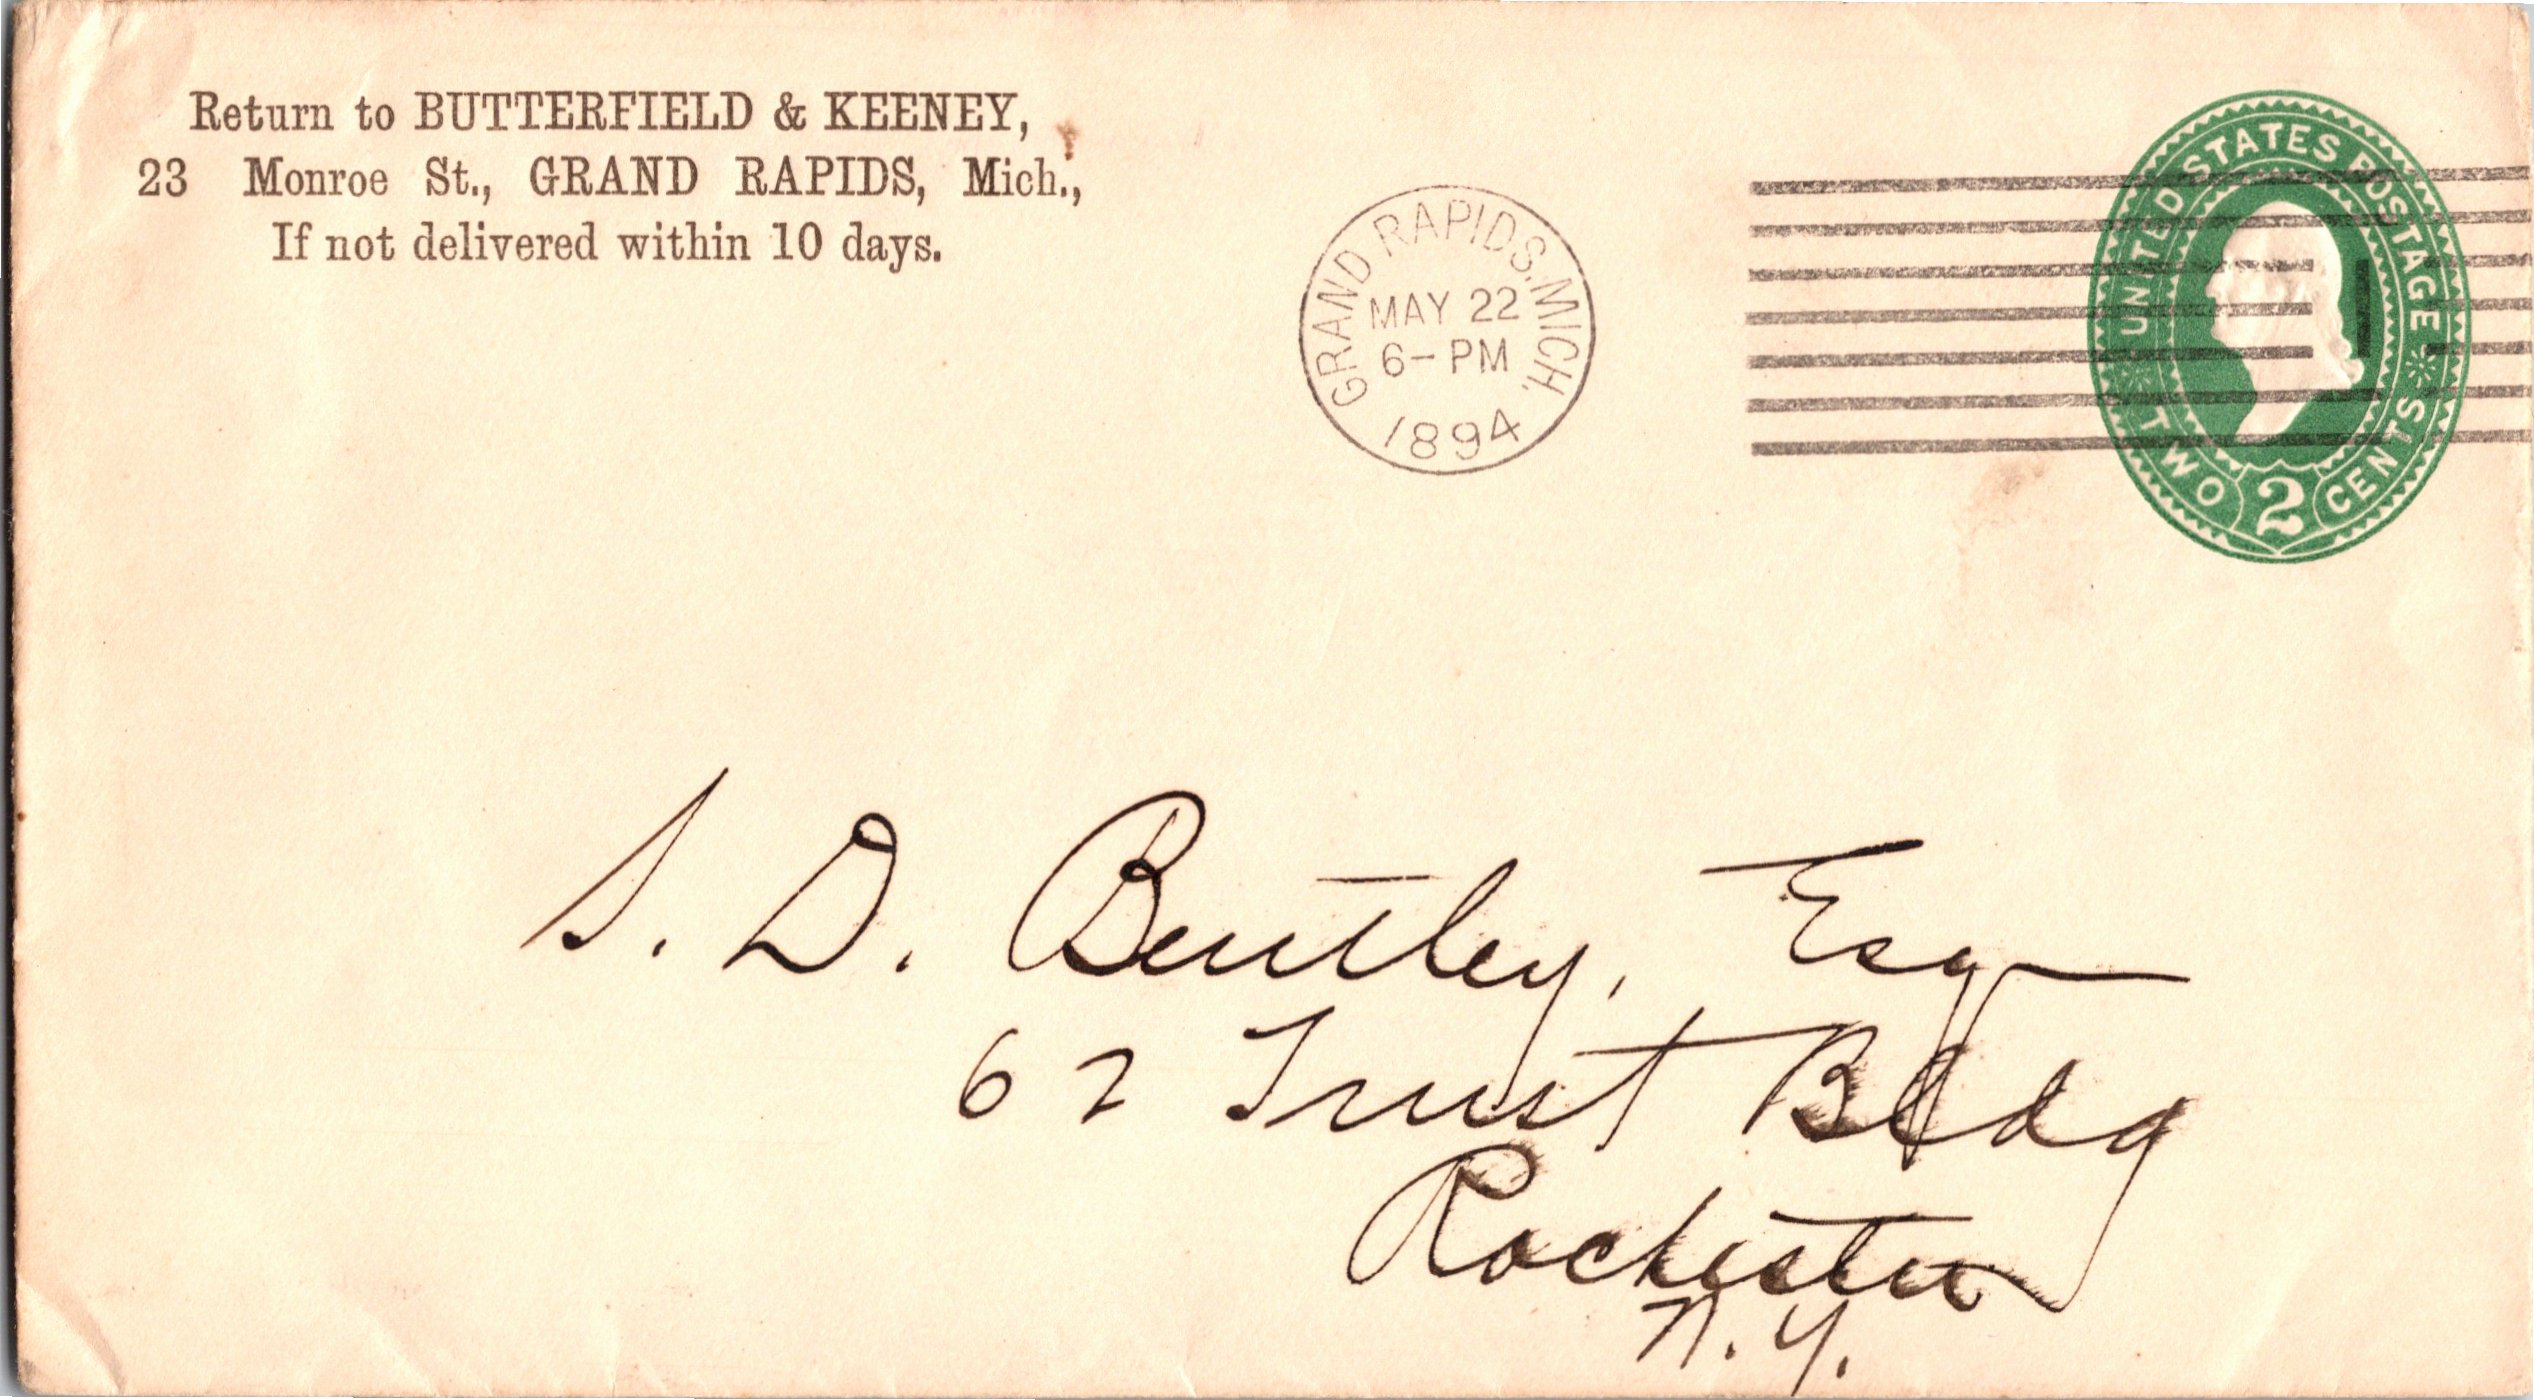 Return to BUTTERFIELD & KEENEY,
23 Monroe St., GRAND RAPIDS, Mich.,
If not delivered within 10 days.
GRAND RAPIDS. MICH.
MAY 22
6-PM
1894
UNITED STATES POSTAGE
TWO 2 CENTS
1
S. D. Bentley, Esq
62 Trust Bldg
Rochester
N.Y.